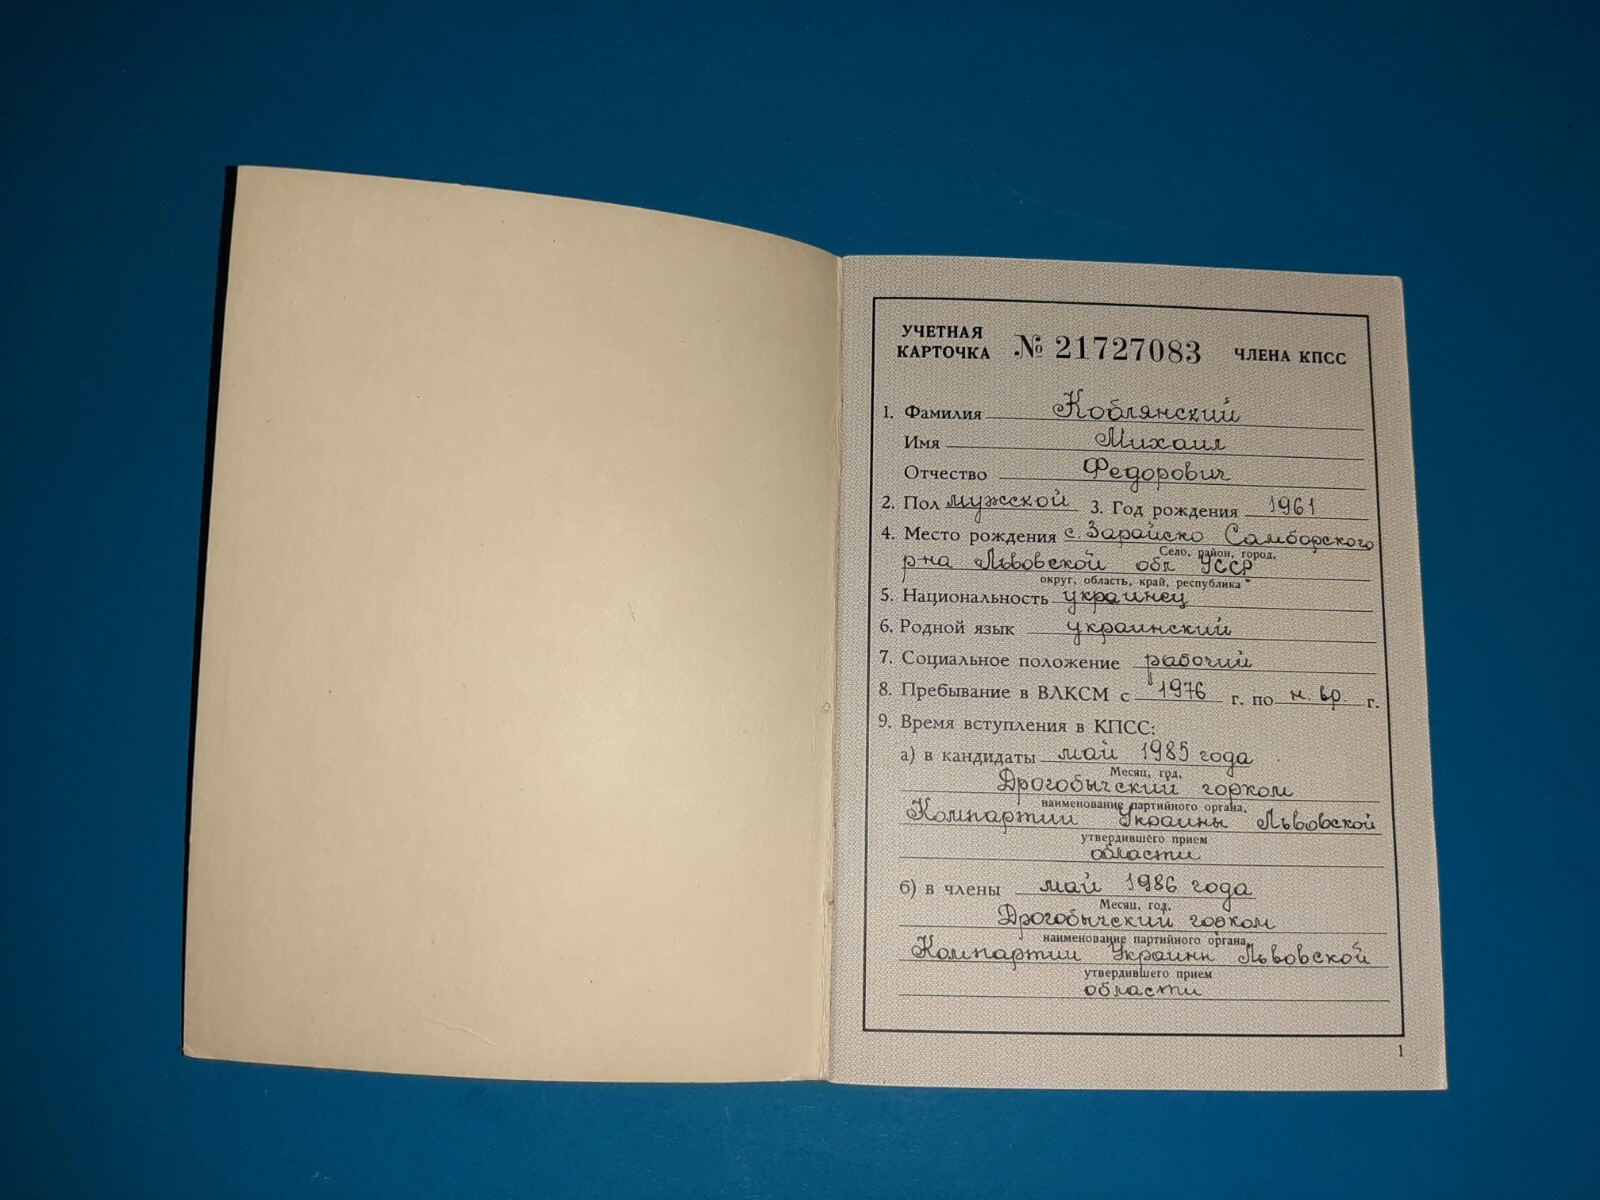 УЧЕТНАЯ КАРТОЧКА № 21727083 ЧЛЕНА КПСС
1. Фамилия Коблянский
Имя Михаил
Отчество Федорович
2. Пол мужской 3. Год рождения 1961
4. Место рождения с. Зарайско Самборского
Село, район, город,
р-на Львовской обл УССР
округ, область, край, республика
5. Национальность украинец
6. Родной язык украинский
7. Социальное положение рабочий
8. Пребывание в ВЛКСМ с 1976 г. по н. вр г.
9. Время вступления в КПСС:
а) в кандидаты май 1985 года
Месяц, год,
Дрогобычский горком
наименование партийного органа,
Компартии Украины Львовской
утвердившего прием
области
б) в члены май 1986 года
Месяц, год,
Дрогобычский горком
наименование партийного органа,
Компартии Украини Львовской
утвердившего прием
области
1